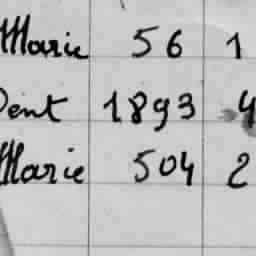 Marie 56 1
Dent 1893 4
Marie 504 2